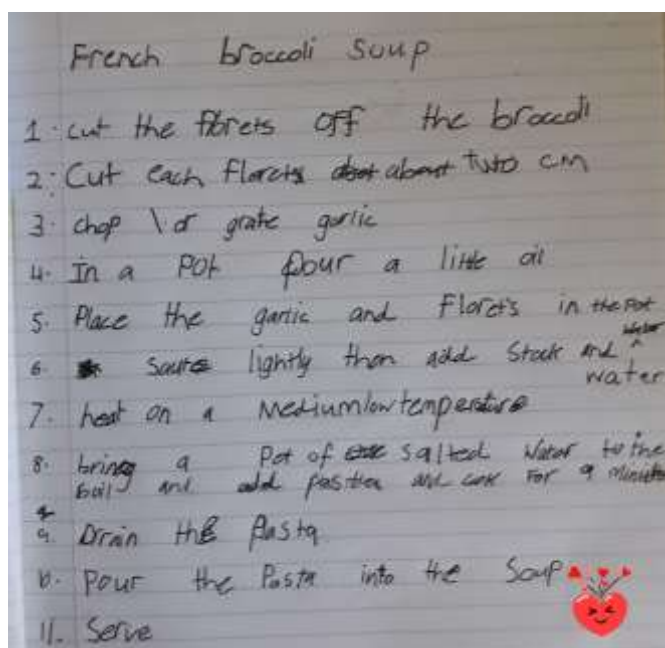 French broccoli soup
1. cut the florets off the broccoli
2. Cut each florets about two cm
3. chop \ or grate garlic
4. In a Pot pour a little oil
5. Place the garlic and florets in the Pot
6. saute lightly then add Stock and
water
7. heat on a Mediumlow temperature
8. bring a Pot of salted water to the
boil and add pasta and cook for 9 minutes
9. Drain the Pasta
10. Pour the Pasta into the Soup
11. Serve